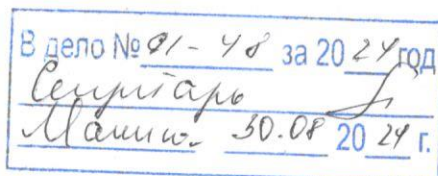 В дело № 01-48 за 2024 год
Секретарь
30.08 2024 г.